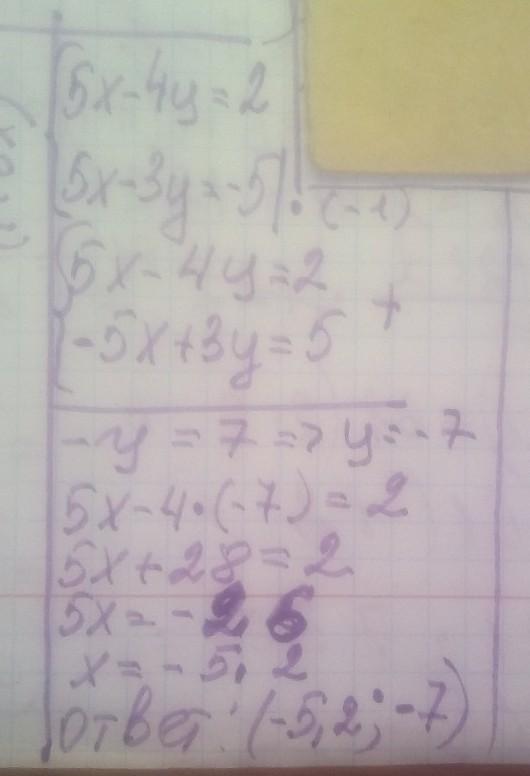 5x-4y=2
5x-3y=-5|·(-1)
5x-4y=2
+
-5x+3y=5
-y=7=>y=-7
5x-4·(-7)=2
5x+28=2
5x=-26
x=-5,2
ответ: (-5,2;-7)